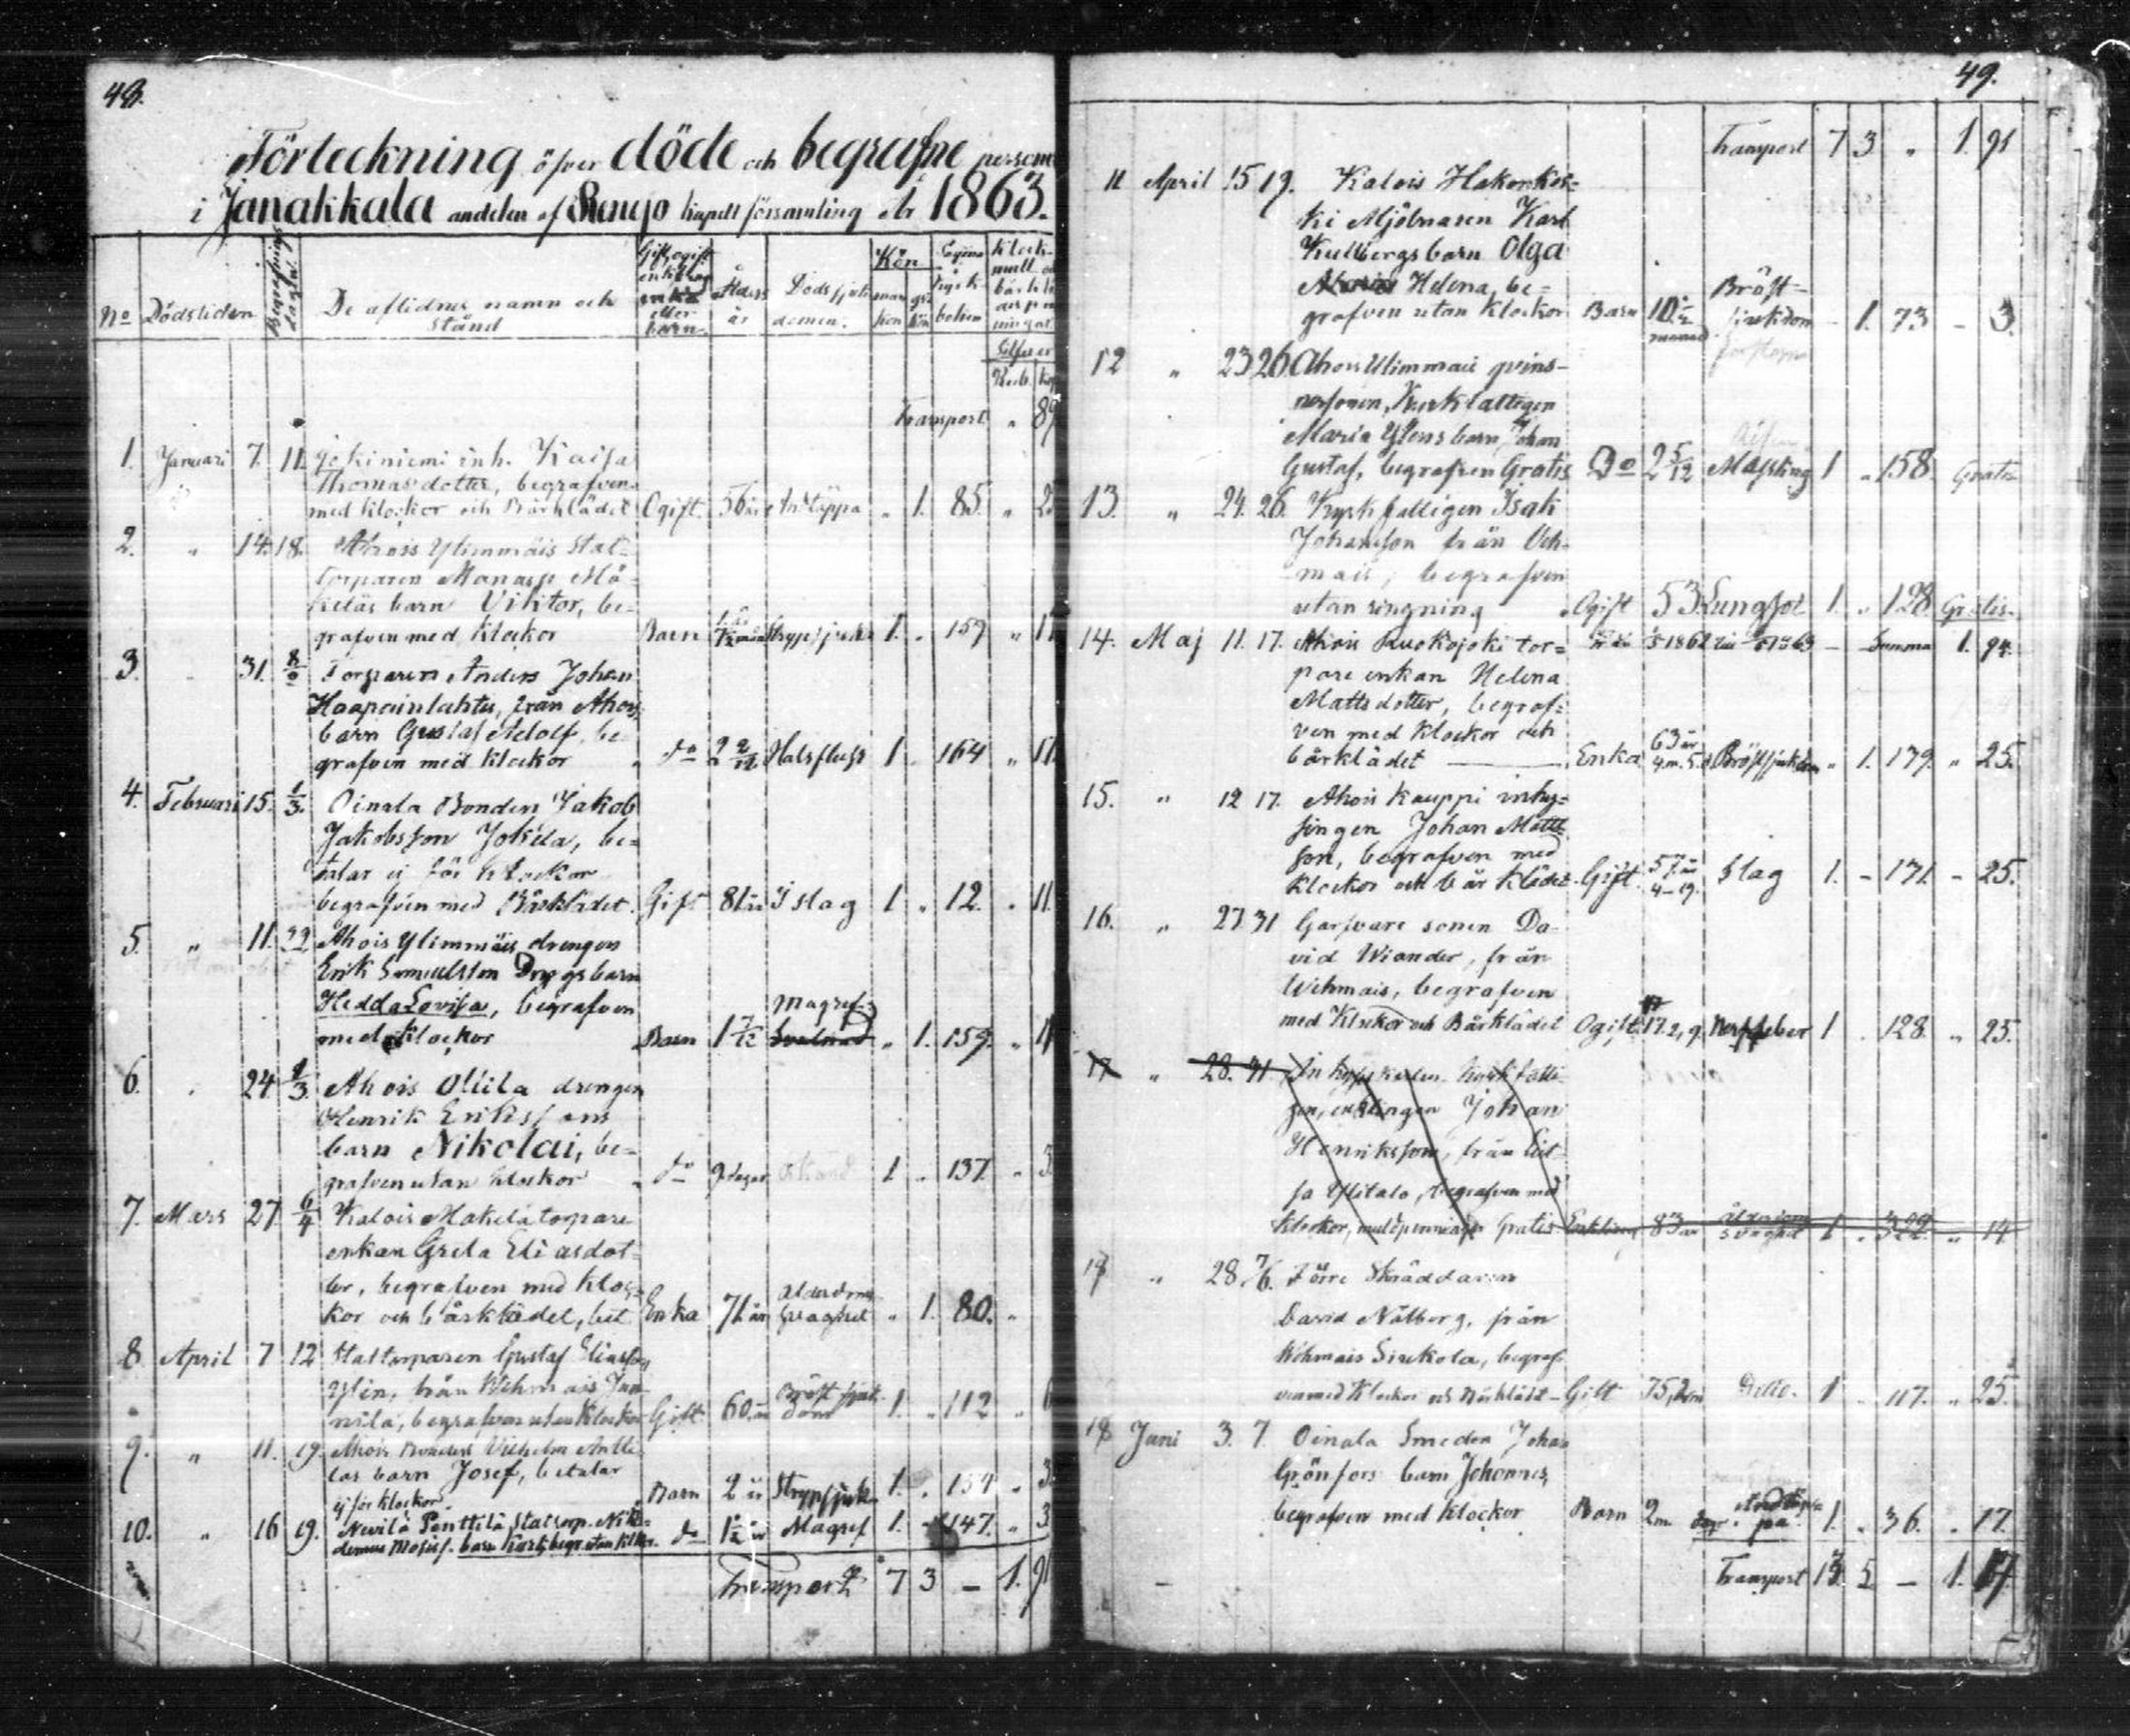 48.
Förteckning öfver döde och begrafne person
i Janakkala andelen af Renijo kapell församling År 1863.
No Dödstiden Begrafnings dagen De aflidnes namn och stånd Gift, ogift enkling enka eller barn Ålders år Dödssjuk domen. Kön man kön qv. kön Pagina i kyrk boken Klock
Silfver
Rub. kop
Transport " 89
1. Januari 7. 11. Jokiniemi inh. Kaisa
Thomasdotter, begrafven
med klockor och Bårklädet Ogift 56 år Andtäppa " 1. 85. " 25
2. " 14. 18. Ahois Ylimmäis Stat-
torparen Manasse Mä-
keläs barn Viktor, be-
grafven med klockor Barn Strypsjukd 1. " 159 " 17
3. 31. 8/2 Torparen Anders Johan
Haapainlahtis, från Ahois
barn Gustaf Adolf, be-
grafven med klockor do 2 2/12 Halsfluss 1 " 164 " 17.
4. Februari 15. 1/3. Oinala Bonden Jakob
Jakobsson Jokela, be-
talar ej för klockor
begrafven med Bårklädet. Gift 81 år Slag 1 " 12. " 11
5. " 11. 22 Ahois Ylimmäis drengen
Erik Samuelsson barn
Hedda Lovisa, begrafven Magref
med klockor Barn 1 7/12 " 1. 159. " 17
6. " 24 1/3. Ahois Ollila drengen
Henrik Erikssons
barn Nikolai, be-
grafven utan klockor do 9 dagar okänd 1 " 137 " 3
7. Mars 27 6/4 Kalois Mäkelä torpare
enkan Greta Eliasdot-
ter, begrafven med kloc-
kor och bårklädet, Enka 71 år Ålderdoms svaghet " 1. 80. "
8 April 7 12 Stattorparen Gustaf Eliasson
Ylin, från Wehmais Jun-
nila, begrafven utan klockor Gift 60 år Bröst sjuk- dom 1. " 112 " 6
9. " 11. 19. Ahois Bonden Vilhelm Antti-
las barn Josef, betalar
ej för klockor Barn 2 år Strypsjuk 1. " 154 " 3
10. " 16 19. Nevilä Penttilä Stattorp. Niko-
demus barn begr. utan klkor. do 1 1/2 år Magref 1. " 147. " 3
Transport 7 3 – 1. 91
49.
Transport 7 3 " 1. 91
11 April 15 19. Kalois Hakonkos-
ki Mjölnaren Karl
Kullbergs barn Olga
Helena, be-
grafven utan klockor Barn 10 1/2 månad Bröst- sjukdom – 1. 73 – 3.
12 " 23 26 Ahois Ylimmäis qvins-
personen, Kyrkfattigen
Maria Ylens barn Johan
Gustaf, begrafven Gratis Do 2 5/12 Messling 1 " 158. Gratis
13. " 24. 26. Kyrkfattigen Isak
Johansson från Veh-
mais, begrafven
utan ringning Ogift 53 Lungsot 1. " 128 Gratis.
14. Maj 11. 17. Ahois Ruokojoki tor- Summa 1. 94.
pare enkan Helena
Mattsdotter, begraf-
ven med klockor och
bårklädet Enka 63 år 4 m. 5 d Bröstsjukdom " 1. 179. " 25.
15. " 12 17. Ahois Kauppi inhy-
singen Johan Matts
son, begrafven med
klockor och bår klädet. Gift. 57 år 4–19. Slag 1. – 171. – 25.
16. " 27 31 Garfvare sonen Da-
vid Wiander, från
Wehmais, begrafven
med Klockor och Bårklädet Ogift 17. 2, 9. Nerffeber 1 " 128. " 25.
17 " 28. 31. Inhyses kyrkfatti-
gen, enklingen Johan
Henriksson, från
Ylitalo, begrafven med
klockor, mullpenningar Gratis Enkling 83 år ålderdoms svaghet 1 " 322 " 14
17 " 28 7/6. Förre Skräddaren
David Nålberg, från
Wehmais Sirkola, begraf-
ven med klockor och Bårklädet – Gift 75, 2 m Ditto. 1 " 117. " 25.
18 Juni 3. 7. Oinala Smeden Johan
Grönfors barn Johannes,
begrafven med klockor Barn 2 m Andtäp- pa 1. " 36. " 17.
Transport 13. 5 – 1.